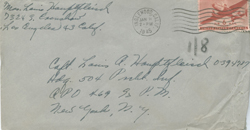 Mrs Louis A Hauptfleisch
7324 S.
Los Angeles 43 Calif.
1945
118
Capt. Louis A Hauptfleisch
Hdq. 504 Prcht Inf
A.P.O 469 % P.M.
New York, N.Y.